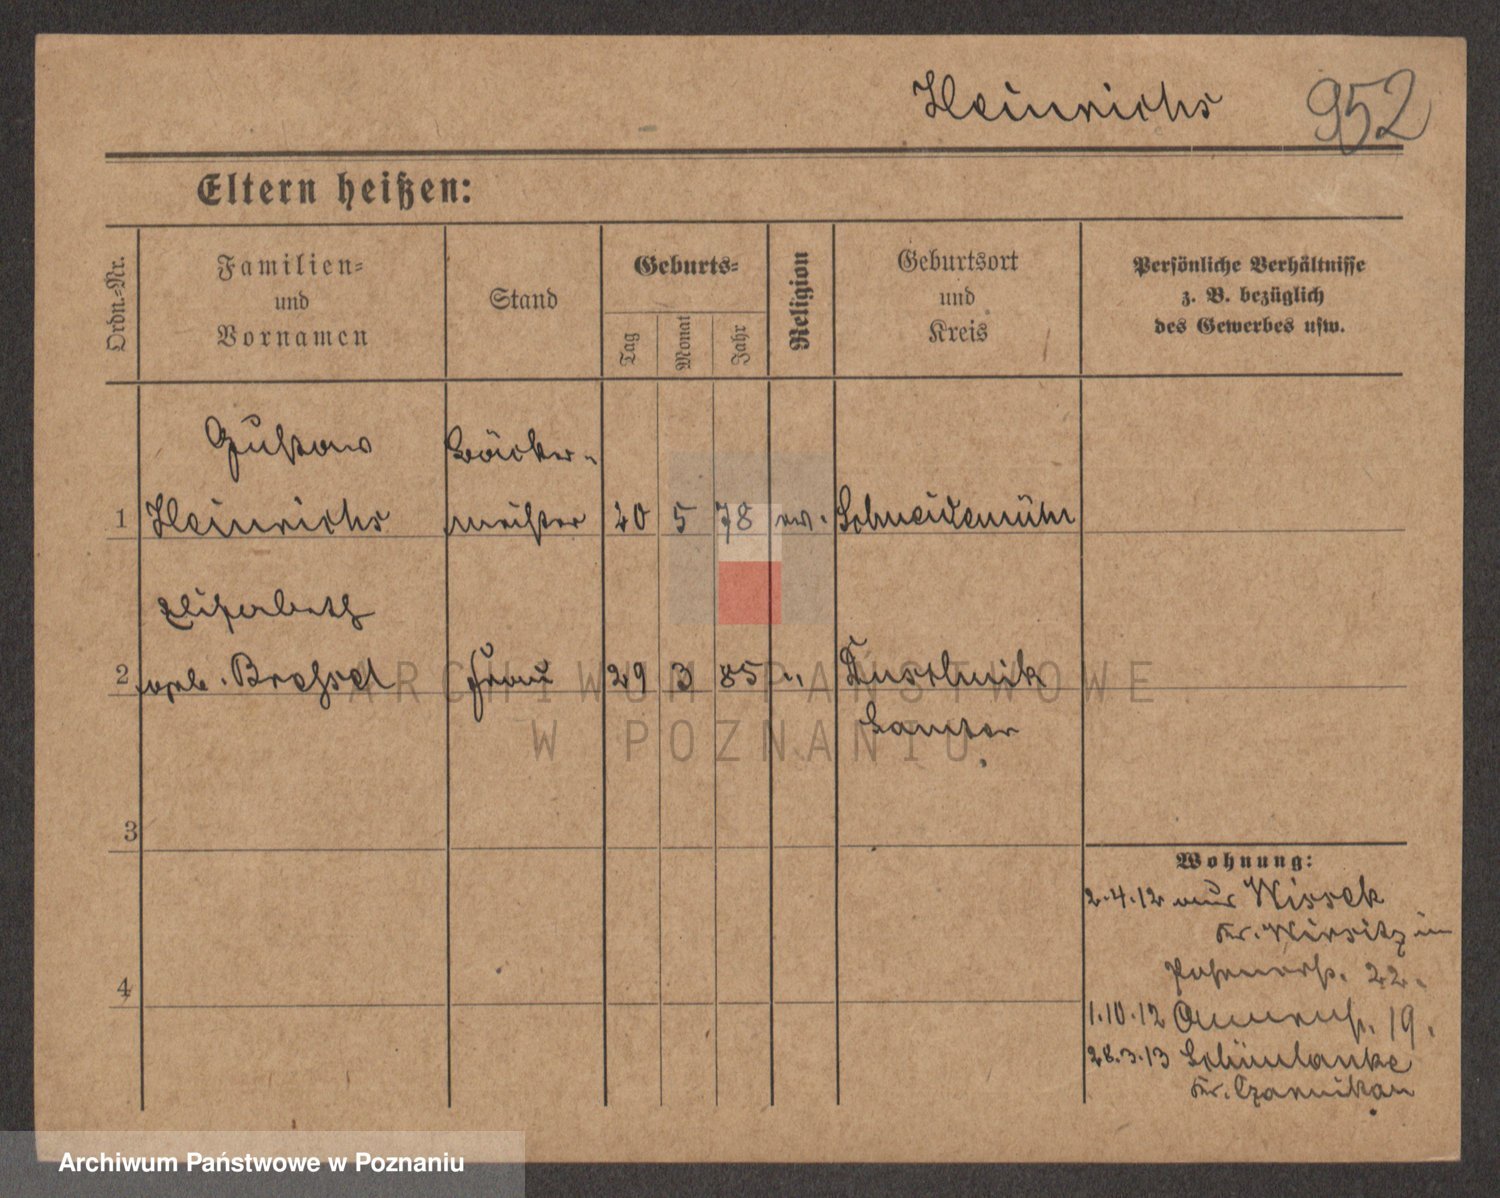 Heinrichs 952
Eltern heißen:
Ordn.-Nr.
Familien-
und
Vornamen
Stand
Geburts-
Tag
Monat
Jahr
Religion
Geburtsort
und
Kreis
Persönliche Verhältnisse
z. B. bezüglich
des Gewerbes usw.
Gustav Bäcker-
1 Heinrichs meister 20 5 78 ev. Schneidemühl
Elisabeth
2 geb. Frau 29 3 85 " Duschnik
Samter
3
4
Wohnung:
2.4.12 aus Wissek
Kr. Wirsitz in
22.
1.10.12 19.
28.3.13 Schönlanke
Kr. Czarnikau
ARCHIWUM PAŃSTWOWE
W POZNANIU
Archiwum Państwowe w Poznaniu